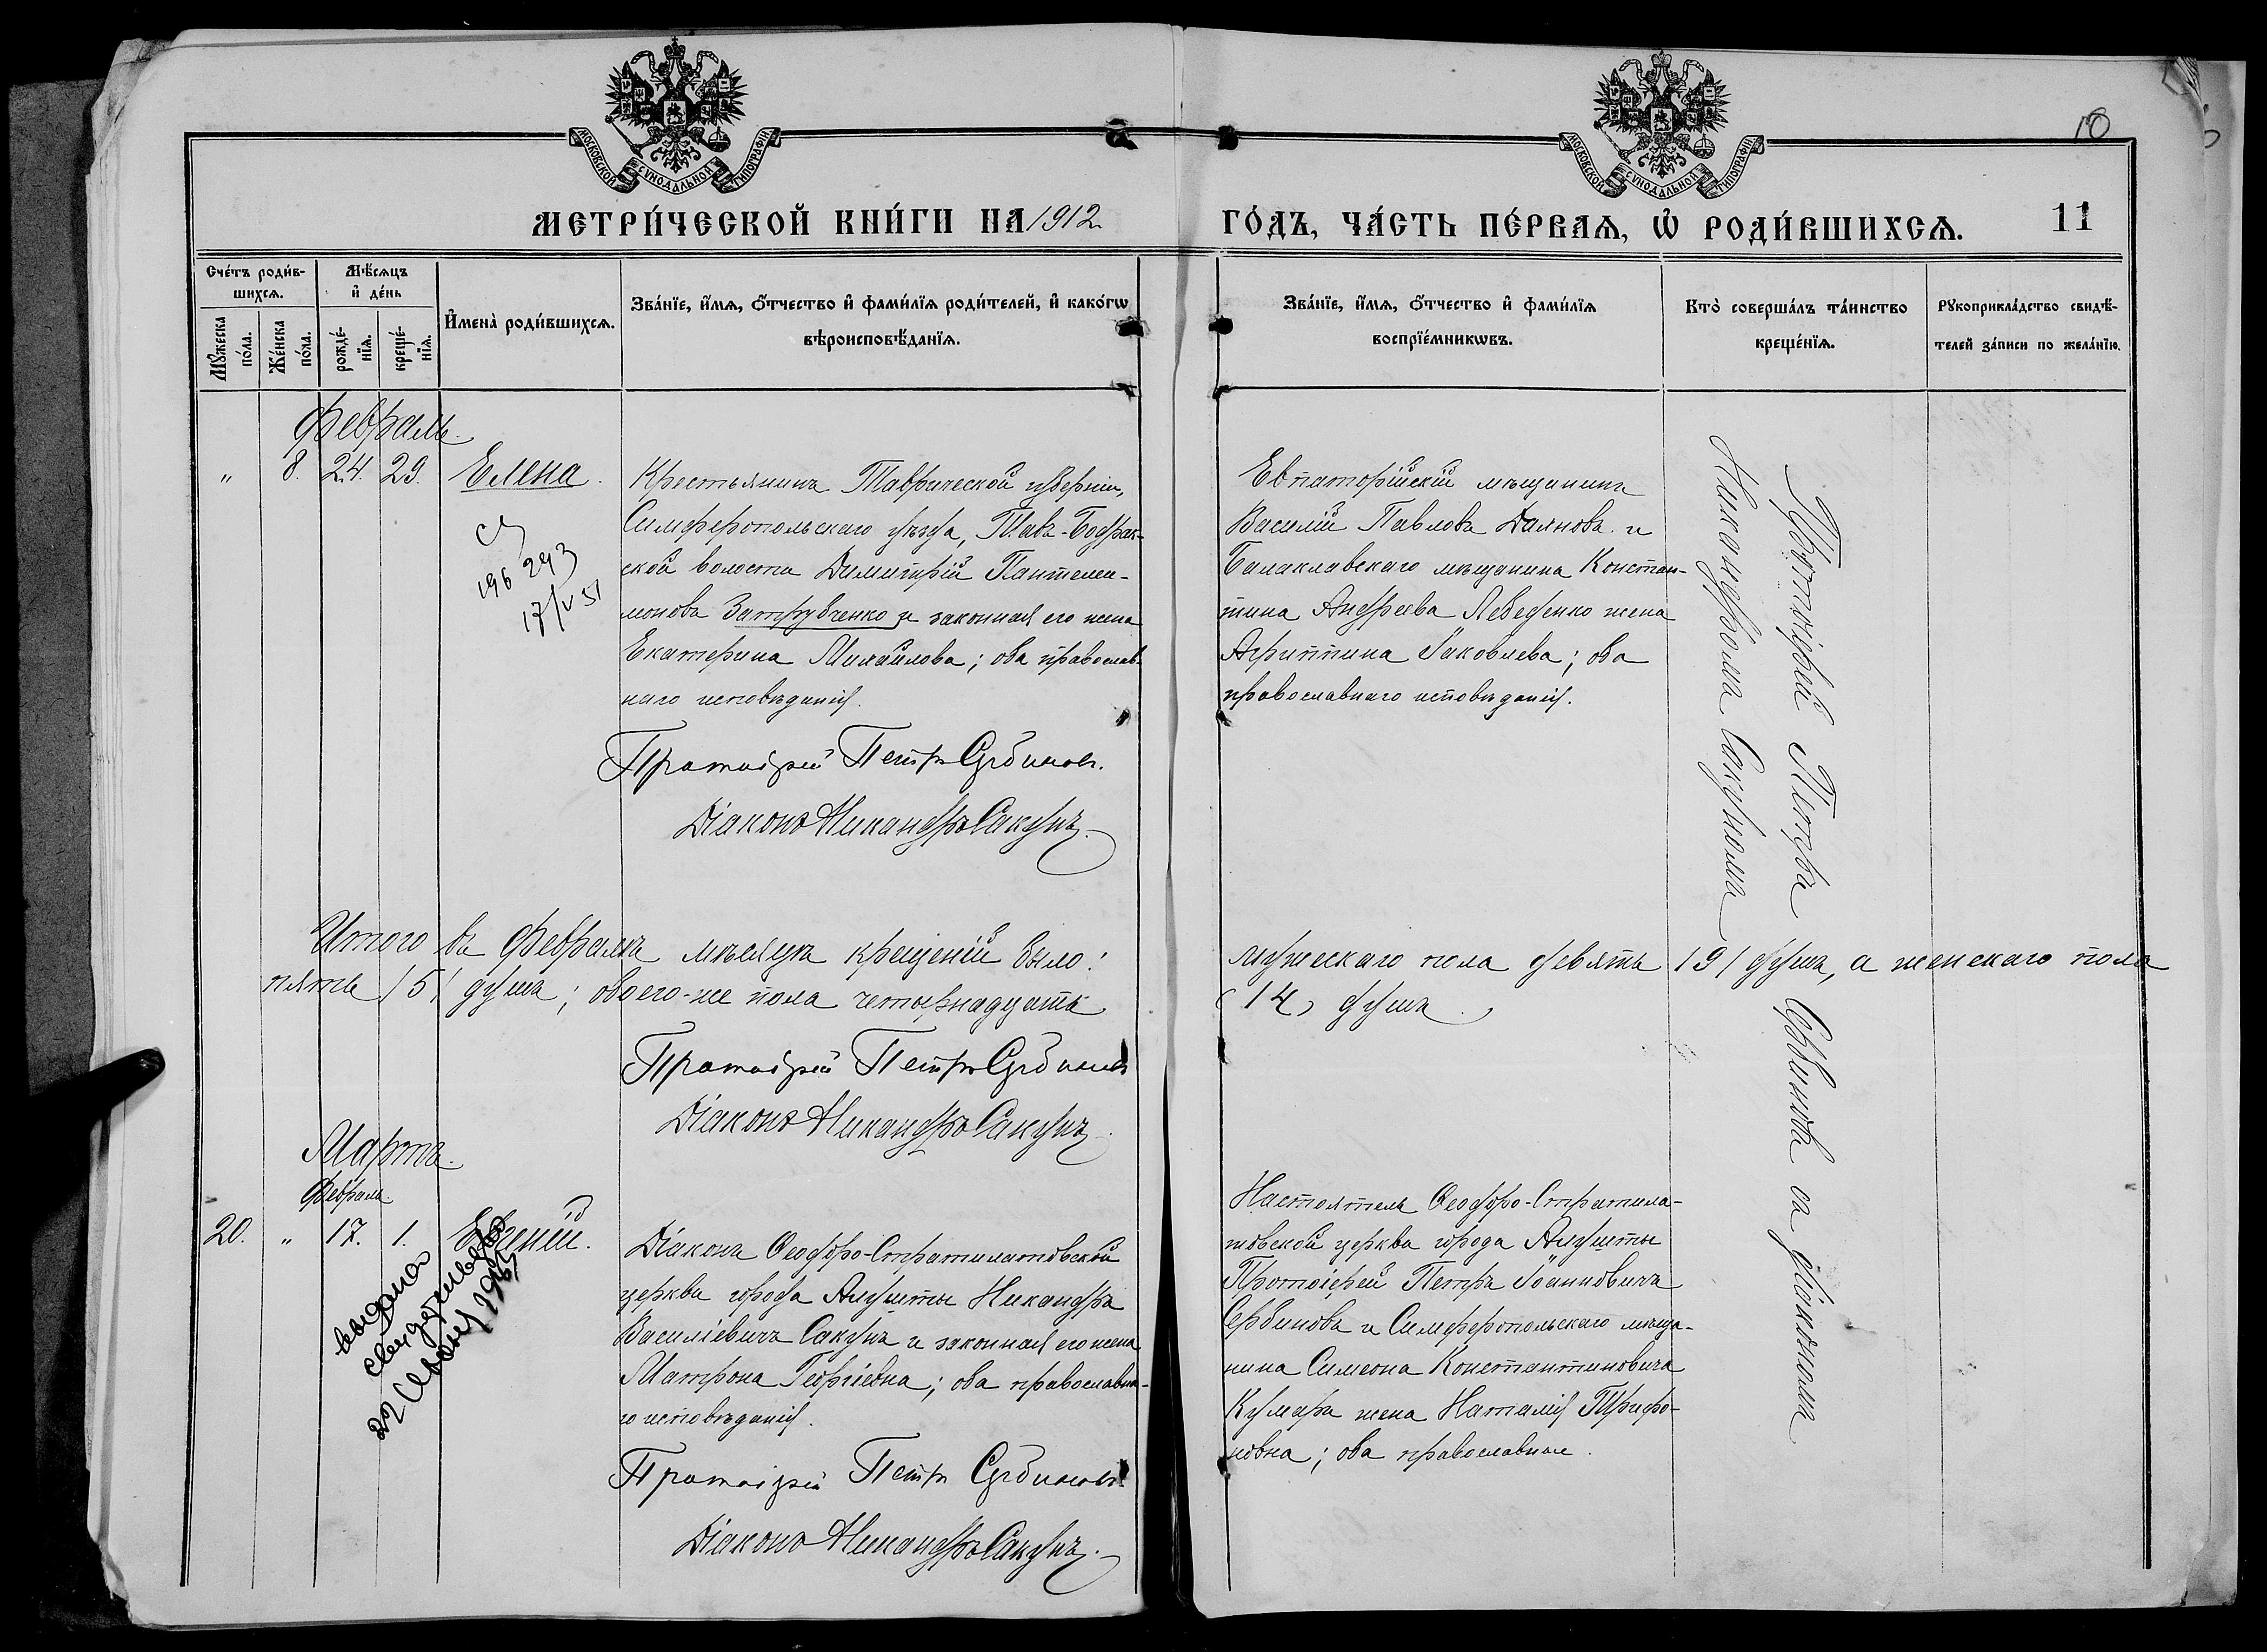 МОСКОВСКОЙ СѴНОДАЛЬНОЙ ТИПОГРАФІИ
МОСКОВСКОЙ СѴНОДАЛЬНОЙ ТИПОГРАФІИ
10
МЕТРИ́ЧЕСКОЙ КНИ́ГИ НА 1912
ГО́ДЪ, ЧА́СТЬ ПЕ́РВАѦ, Ѡ҆ РОДИ́ВШИХСѦ. 11
Сче́тъ роди́в-
шихсѧ.
Мѣ́сѧцъ
и҆ де́нь
Мꙋ́жеска
по́ла.
Же́нска
по́ла.
рожде́-
нїѧ.
креще́-
нїѧ.
И҆мена̀ роди́вшихсѧ.
Зва́нїе, и҆́мѧ, ѻ҆́тчество и҆ фами́лїѧ роди́телей, и҆ како́гѡ
вѣроисповѣ́данїѧ.
Зва́нїе, и҆́мѧ, ѻ҆́тчество и҆ фами́лїѧ
воспрїе́мникѡвъ.
Кто̀ соверша́лъ та́инство
креще́нїѧ.
Рꙋкоприкла́дство свидѣ́-
телей за́писи по жела́нїю.
Февраль.
" 8. 24. 29. Елена.
196 293
17/V 51
Крестьянинъ Таврической губерніи,
Симферопольскаго уѣзда, Тавъ-Бодрак-
ской волости Димитрій Пантелеи-
моновъ Затрубченко и законная его жена
Екатерина Михайлова; оба православ-
наго исповѣданія.
Протоіерей Петръ Сербиновъ.
Діаконъ Никандръ Сакунъ.
Евпаторійскій мѣщанинъ
Василій Павловъ Даяновъ и
Балаклавскаго мѣщанина Констан-
тина Андреева Лебеденко жена
Агриппина Іаковлева; оба
православнаго исповѣданія.
Протоіерей Петръ Сербиновъ съ діакономъ
Никандромъ Сакуномъ
Итого въ Февралѣ мѣсяцѣ крещеній было: мужескаго пола девять /9/ душъ, а женскаго пола
пять /5/ душъ; обоего-же пола четырнадцать (14) душъ.
Протоіерей Петръ Сербиновъ
Діаконъ Никандръ Сакунъ.
Мартъ.
Февраль.
20. " 17. 1. Евгеній.
выдано
свидетельство
22 Июня 1916
Діаконъ Ѳеодоро-Стратилатовской
церкви города Алушты Никандръ
Василіевичъ Сакунъ и законная его жена
Матрона Георгіевна; оба православна-
го исповѣданія.
Протоіерей Петръ Сербиновъ
Діаконъ Никандръ Сакунъ.
Настоятель Ѳеодоро-Стратила-
товской церкви города Алушты
Протоіерей Петръ Іоанновичъ
Сербиновъ и Симферопольскаго мѣща-
нина Симеона Константиновича
Кумара жена Наталія Трифо-
новна; оба православные.